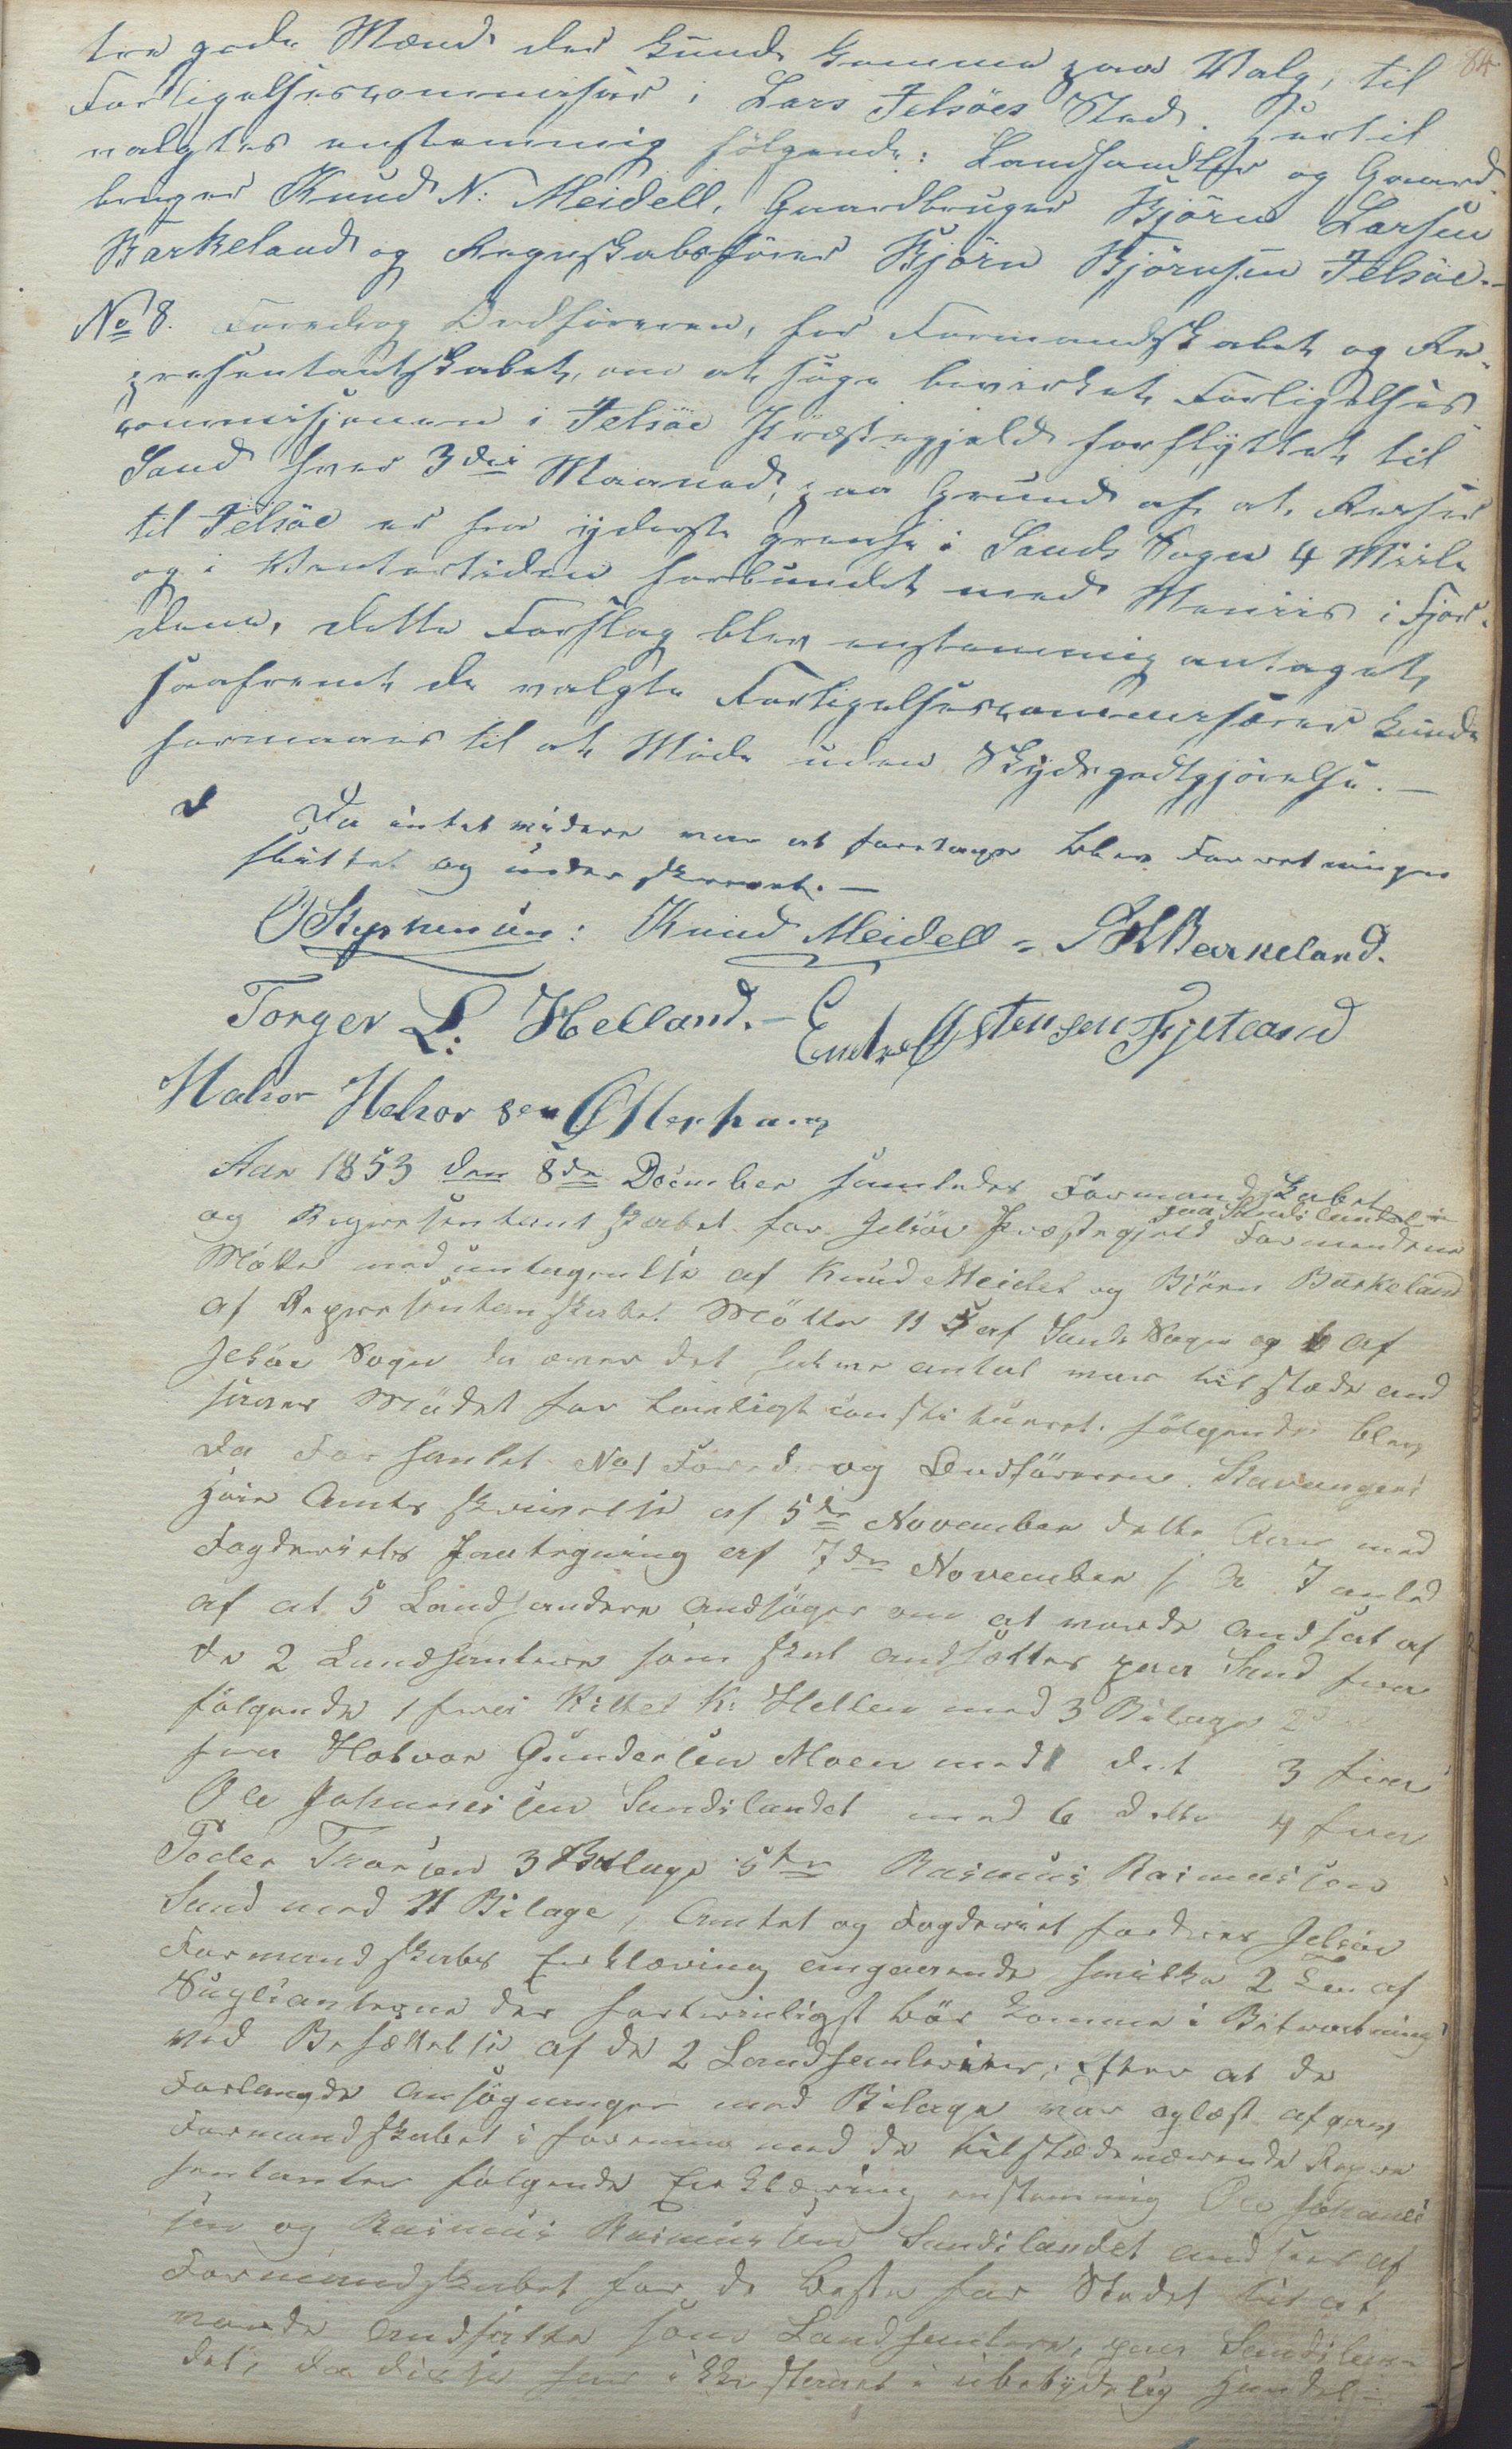 84
tre gode Mænd der kunde komme paa Valg, til
Forligelsescommissair i Lars Jelsöes Sted. Hertil
valgtes enstemmig fölgende: Landhandler og Gaard-
bruger Knud N: Meidell, Gaardbruger Björn Larsen
Barkeland og Regnskabsförer Björn Björnsen Jelsöe.-
No 8. Foredrog Ordföreren, for Formandskabet og Re-
præsentantskabet, om at söge bevirket Forligelses
commisjonen i Jelsöe Præstegjeld forflyttet til
Sand hver 3die Maaned, paa Grund af at Reiser
til Jelsöe er fra yderste grense i Sands Sogn 4 Miile
og i Vintertiden forbundet med Meniis i Fjor-
dene, dette Forslag blev enstemmig antaget,
saafremt de valgte Forligelsescommissærer kunde
formaaes til at Möde uden Skydsgodtgjörelse.-
Da intet vidère var at foretage blev Forretningen
sluttet og underskrevet.-
Knud Meidell = B L Barkeland.
Torger L: Helland.- Endre Östensen Fjetland
Halvor Halvorsen Østerhuus
Aar 1853 den 8de December samledes Formandskabet
paa Sandslandet
og Repræsentantskabet for Jelsöe Præstegjeld Formændene
Mötte med untagelse af Knud Meidel og Björn Barkeland
af Repræsentanskabet Mötte 11 5 af Sands Sogn og 6 af
Jelsöe Sogn da over det halve antal var tilstæde and
saaes Mödet for lovligt constitueret. fölgende blev
da Forhanlet No 1 Foredrog Ordföreren Stavangers
Höie Amts skrivelse af 5de November dette Aar med
Fogderiets Paategning af 7de November s. A. I anled
af at 5 Landhandere andsöger om at vorde andsat af
de 2 Landhandere som skal andsættes paa Sand fra
fölgende 1 fra Kittel K: Hellen med 3 Bilage 2
fra Halvor Gundersen Moen med 1 det 3 fra
Ole Johannesen Sandslandet med 6 dette 4 fra
Peder Thorsen 3 Bilage 5te Rasmus Rasmussen
Sand med 11 Bilage, Amtet og Fogderiet fordrer Jelsöe
Formandskabs Erklæring angaaende hvilke 2de af
Suplianterne der fortrinligst bör komme i Betragtning
ved Besættelse af de 2 Landhanlerier, efter at de
Forlangde ansögninger med Bilage var oplæst afgav
Formandskabet i forening med de tilstædeværende Repræ
sentanter fölgende Erklæring enstemmig Ole Johanes
sen og Rasmus Rasmussen Sandslandet andsees af
Formandskabet for de beste for Stedet til at
vorde andsatte som Landhanlere, paa Sandslan-
det, da disse har ikke staaet i ubetydelig Handel-